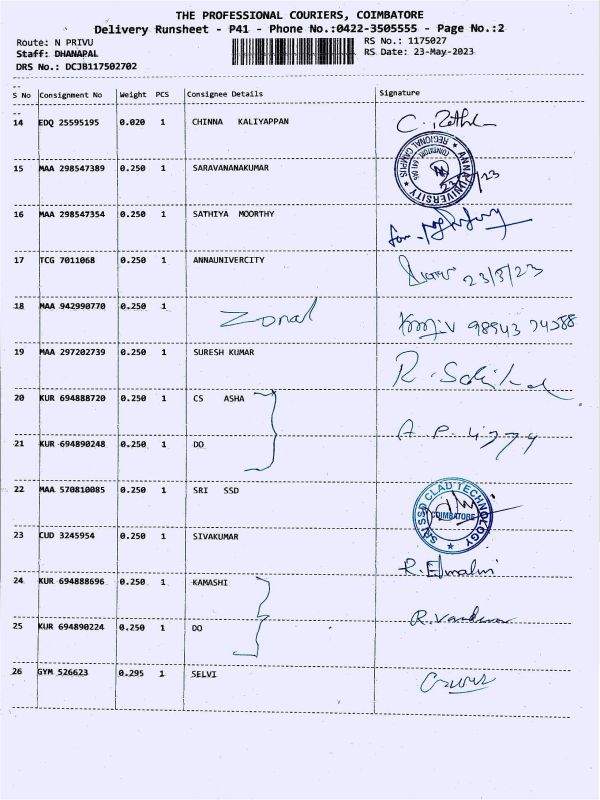 THE PROFESSIONAL COURIERS, COIMBATORE
Delivery Runsheet - P41 - Phone No.:0422-3505555 - Page No.:2
Route: N PRIVU RS No.: 1175027
Staff: DHANAPAL RS Date: 23-May-2023
DRS No.: DCJB117502702
S No Consignment No Weight PCS Consignee Details Signature
14 EDQ 25595195 0.020 1 CHINNA KALIYAPPAN
15 MAA 298547389 0.250 1 SARAVANANAKUMAR ANNA UNIVERSITY REGIONAL CAMPUS
16 MAA 298547354 0.250 1 SATHIYA MOORTHY
17 TCG 7011068 0.250 1 ANNAUNIVERCITY 23/5/23
18 MAA 942990770 0.250 1 Zonal
19 MAA 297202739 0.250 1 SURESH KUMAR
20 KUR 694888720 0.250 1 CS ASHA
21 KUR 694890248 0.250 1 DO
22 MAA 570810085 0.250 1 SRI SSD SRI SSD CLAD TECHNOLOGY COIMBATORE
23 CUD 3245954 0.250 1 SIVAKUMAR
24 KUR 694888696 0.250 1 KAMASHI
25 KUR 694890224 0.250 1 DO
26 GYM 526623 0.295 1 SELVI